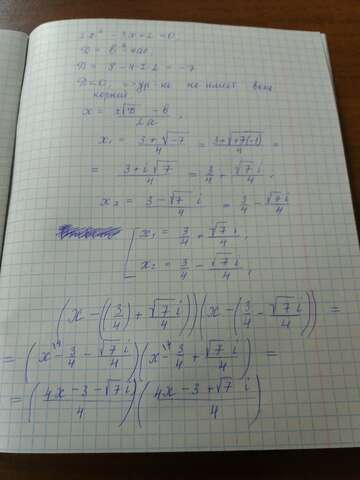 2x² - 3x + 2 = 0
D = b² - 4ac
D = 9 - 4·2·2 = -7
D<0, => ур-ие не имеет вещ.
корней
x = ±√D - b / 2a,
x₁ = 3+√-7 / 4 = 3+√+7(-1) / 4 =
= 3+i√7 / 4 = 3/4 + √7i / 4,
x₂ = 3-√7 i / 4 = 3/4 - √7i / 4
[ x₁ = 3/4 + √7i / 4,
x₂ = 3/4 - √7i / 4,
(x - ((3/4) + √7i / 4)) (x - (3/4 - √7i / 4)) =
= (x\4 - 3/4 - √7i / 4) (x\4 - 3/4 + √7i / 4) =
= (4x - 3 - √7i / 4) (4x - 3 + √7 i / 4)